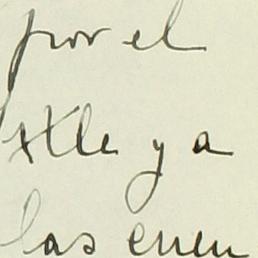 por el
xtle y a
las cuen